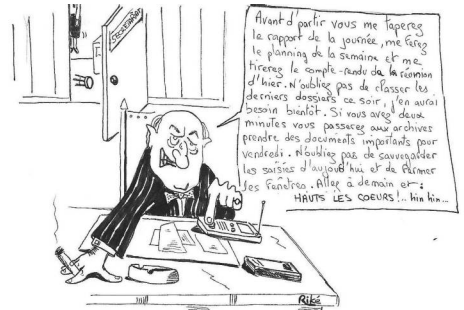 SECRETARIAT
Avant d'partir vous me taperez
le rapport de la journée, me ferez
le planning de la semaine et me
tirerez le compte-rendu de la réunion
d'hier. N'oubliez pas de classer les
derniers dossiers ce soir, j'en aurai
besoin bientôt. Si vous avez deux
minutes vous passerez aux archives
prendre des documents importants pour
vendredi. N'oubliez pas de sauvegarder
les saisies d'aujourd'hui et de fermer
les fenêtres. Allez à demain et :
HAUTS LES COEURS !.. hin hin...
Riké